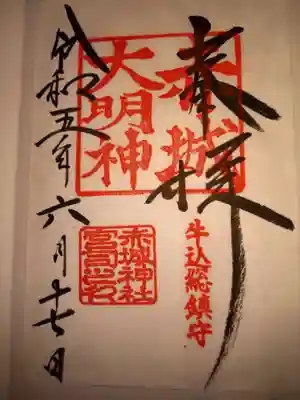 奉拝
牛込総鎮守
赤城
大明神
赤城神社
宮司之印
令和五年六月十七日